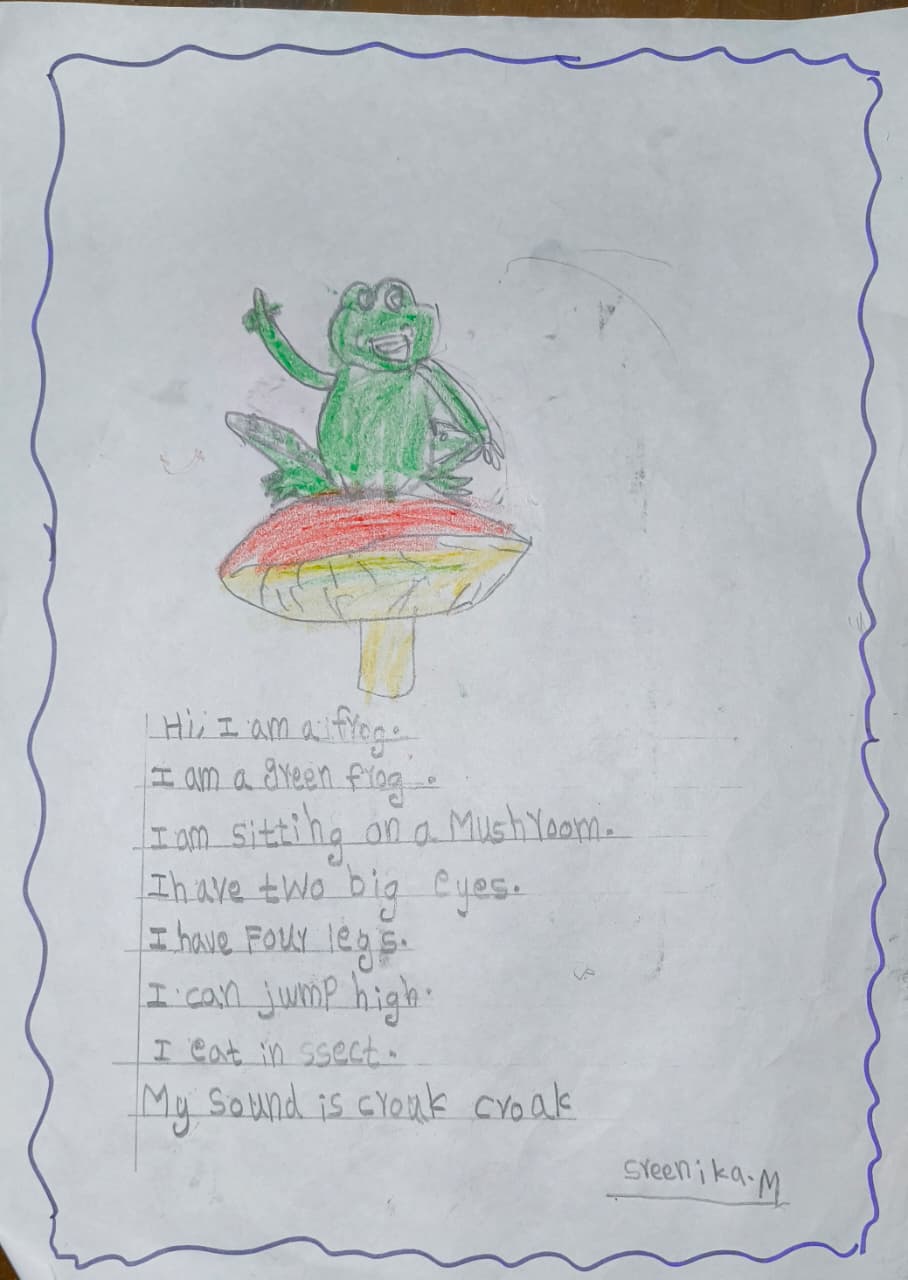 Hi, I am a frog.
I am a green frog.
I am sitting on a Mushroom.
I have two big eyes.
I have Four legs.
I can jump high.
I eat in ssect.
My Sound is croak croak
Sreenika.M